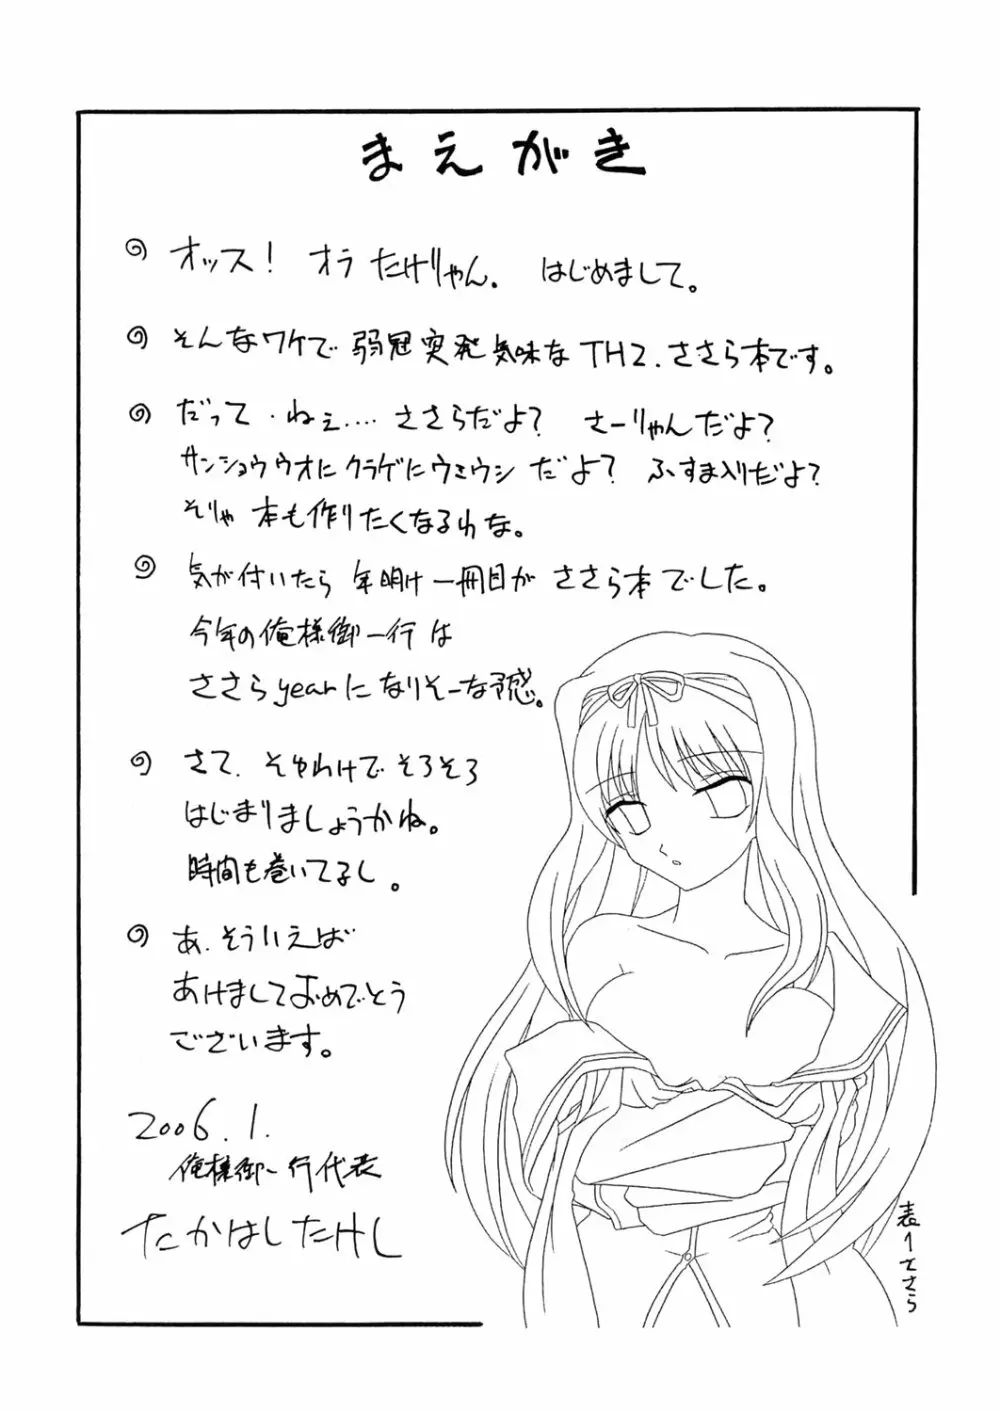 まえがき
オッス！ オラ たけりゃん. はじめまして。
そんなワケで 弱冠突発気味な TH2. ささら本です。
だって・ねぇ.... ささらだよ？ さーりゃんだよ？
サンショウウオにクラゲにウミウシ だよ？ ふすま入りだよ？
そりゃ 本も作りたくなるわな。
気が付いたら 年明け一冊目が ささら本でした。
今年の俺様御一行は
ささらyearになりそーな予感。
さて. そゆわけで そろそろ
はじまりましょうかね。
時間も巻いてるし。
あ. そういえば
あけましておめでとう
ございます。
2006.1.
俺様御一行代表
たかはしたけし